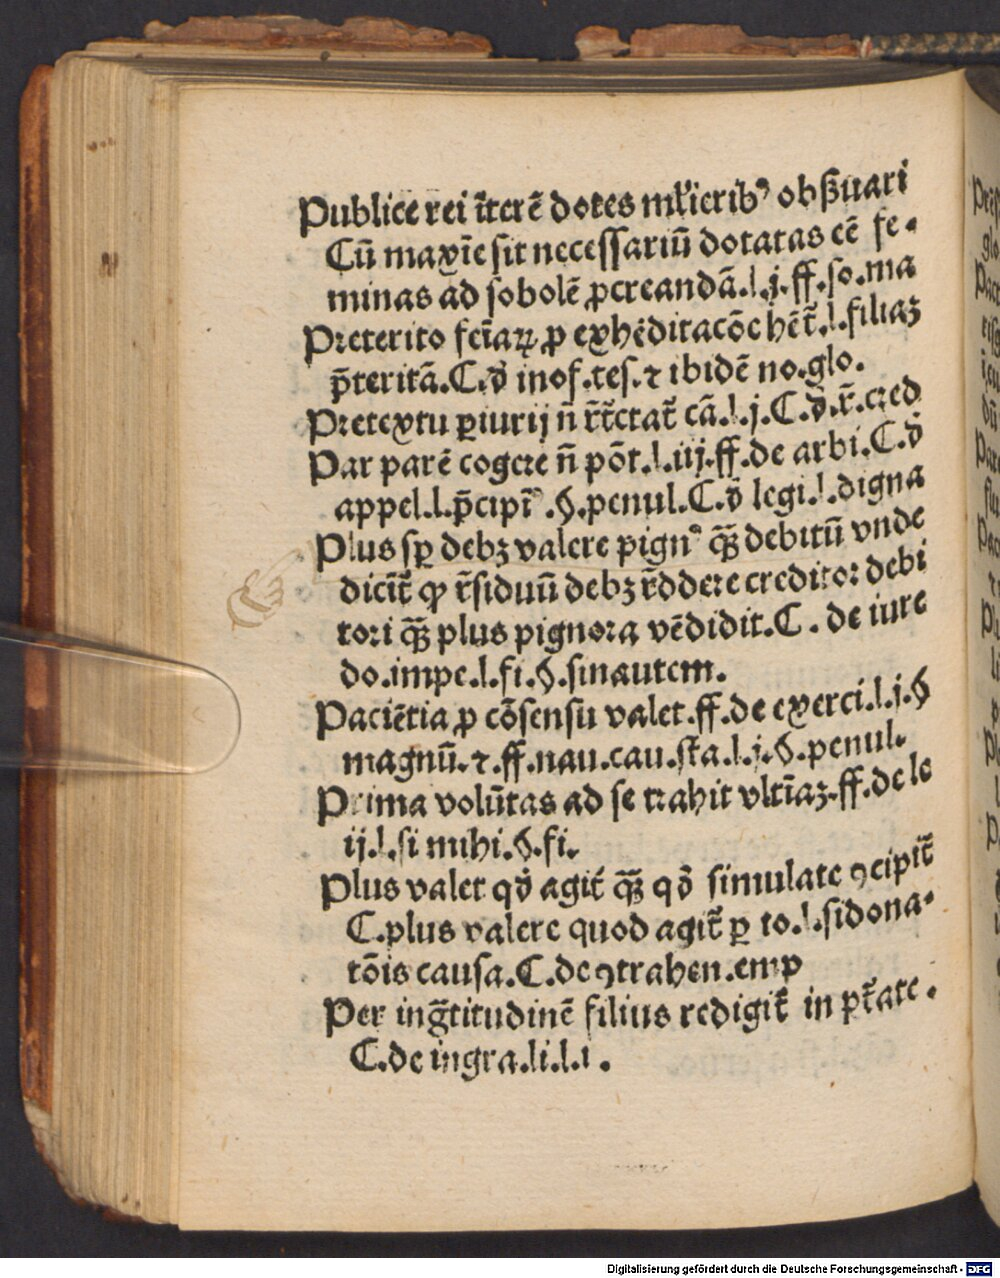 Publice rei īterē dotes ml'ierib⁹ obſ̄uari
Cū maxīe sit necessariū dotatas eē fe-
minas ad sobolē ꝓcreandā.l.j.ff.so.ma
Preterito feīaꝝ ꝓ exhēditacōe hēt̄.l.filiaʒ
p̄teritā.C.đ inof.tes.⁊ ibidē no.glo.
Pretextu ꝑiurij n̄ r̄t̄ctat̄ cā.l.j.C.đ.r̄.cred
Par parē cogere n̄ pōt.l.iij.ff.de arbi.C.đ
appel.l.p̄cipī⁹.§.penul.C.đ legi.l.digna
Plus sꝑ debʒ valere pign⁹ qᷓʒ debitū vnde
dicit̄ ꝙ r̄siduū debʒ r̄ddere creditor debi
tori qᷓʒ plus pignora vēdidit.C. de iure
do.impe.l.fi.§.sinautem.
Paciētia ꝓ cōsensu valet.ff.de exerci.l.j.§
magnū.⁊ ff.nau.cau.sta.l.j.§.penul.
Prima volūtas ad se trahit vltīaʒ.ff.de le
ij.l.si mihi.§.fi.
Plus valet qđ agit̄ qᷓʒ qđ simulate ꝯcipit̄
C.plus valere quod agit̄ ꝑ to.l.sidona-
tōis causa.C.de ꝯtrahen.emp
Per ingᷓtitudinē filius redigit̄ in ptāte.
C.de ingra.li.l.1.
Digitalisierung gefördert durch die Deutsche Forschungsgemeinschaft - DFG